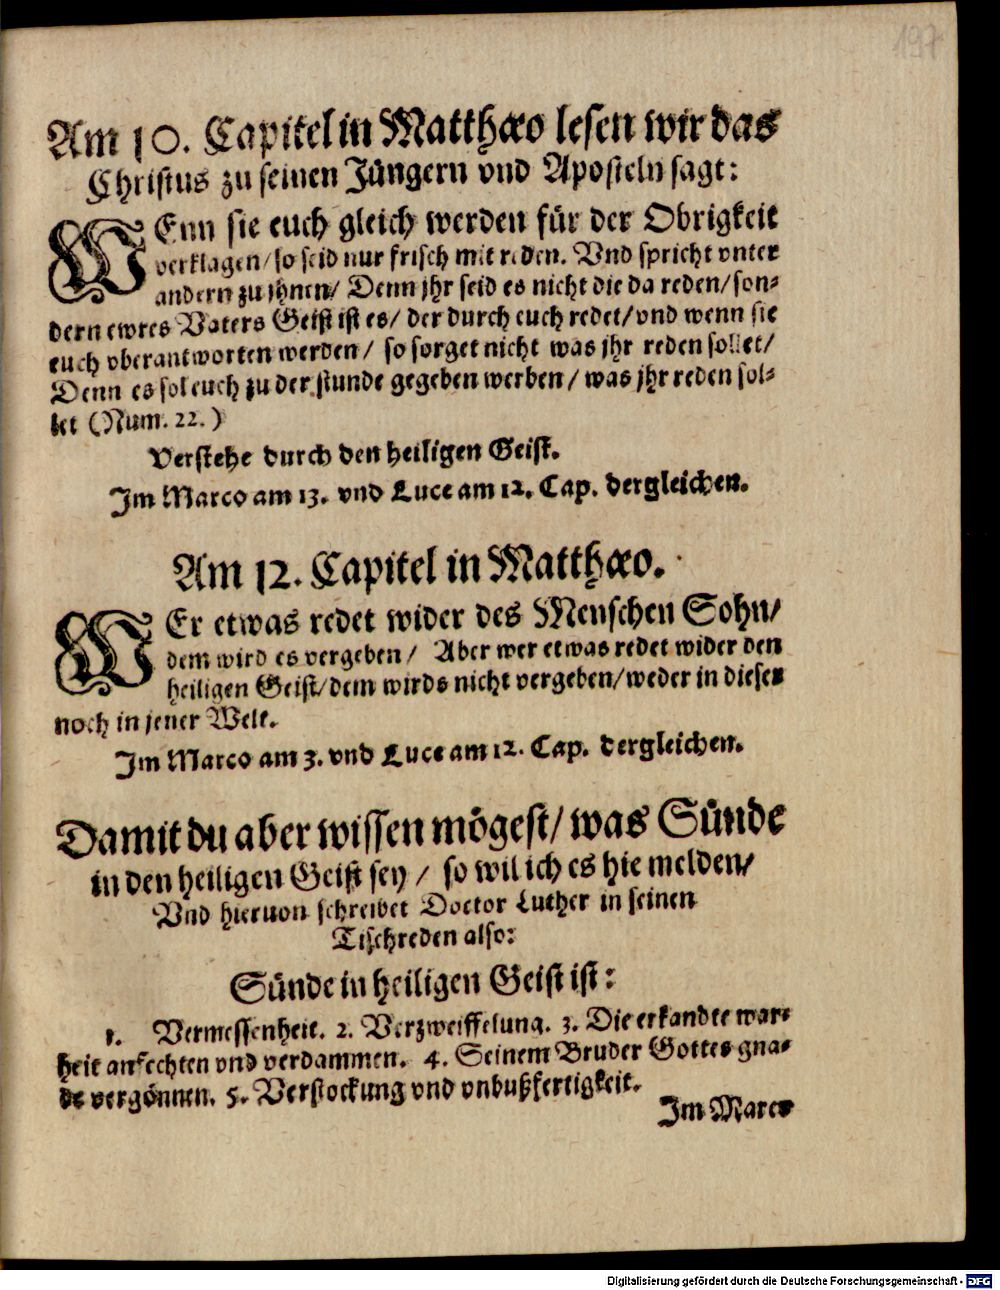 197
Am 10. Capitel in Matthæo lesen wir das
Christus zu seinen Jüngern vnd Aposteln sagt:
WEnn sie euch gleich werden für der Obrigkeit
verklagen/ so seid nur frisch mit reden. Vnd spricht vnter
andern zu jhnen/ Denn jhr seid es nicht die da reden/ son-
dern ewres Vaters Geist ist es/ der durch euch redet/ vnd wenn sie
euch vberantworten werden/ so sorget nicht was jhr reden sollet/
Denn es sol euch zu der stunde gegeben werben/ was jhr reden sol-
let (Num. 22.)
Verstehe durch den heiligen Geist.
Jm Marco am 13. vnd Luce am 12. Cap. dergleichen.
Am 12. Capitel in Matthæo.
WEr etwas redet wider des Menschen Sohn/
dem wird es vergeben/ Aber wer etwas redet wider den
heiligen Geist/ dem wirds nicht vergeben/ weder in dieser
noch in jener Welt.
Jm Marco am 3. vnd Luce am 12. Cap. dergleichen.
Damit du aber wissen mögest/ was Sünde
in den heiligen Geist sey/ so wil ich es hie melden/
Vnd hieruon schreibet Doctor Luther in seinen
Tischreden also:
Sünde in heiligen Geist ist:
1. Vermessenheit. 2. Verzweiffelung. 3. Die erkandte war-
heit anfechten vnd verdammen. 4. Seinem Bruder Gottes gna-
de vergönnen. 5. Verstockung vnd vnbußfertigkeit.
Jm Marco
Digitalisierung gefördert durch die Deutsche Forschungsgemeinschaft - DFG